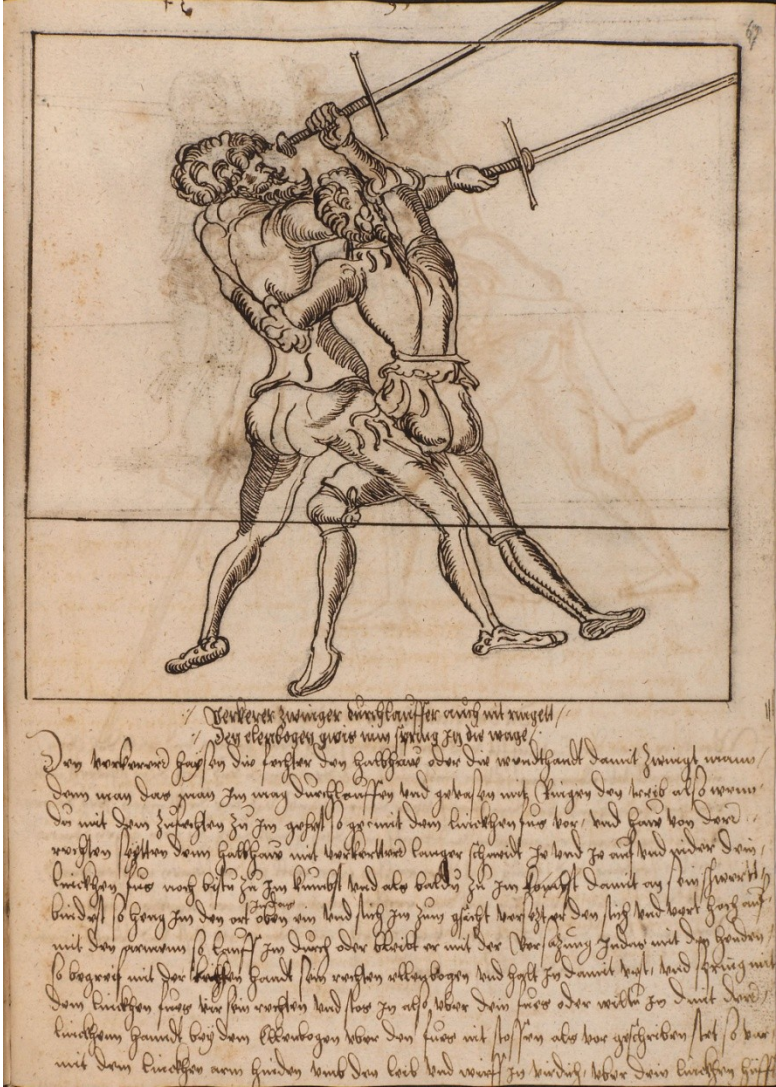 67
Verkerer zwinger durchlauffer auch mit ringen
Den elenbogen gwis nim spring in die wage
Den verkerer haysen die fechter den halbhaw oder die wendthandt damit zwingt mann
denn man das man Im mag durchlauffen und gevasen mitz Ringen den treib also wenn
du mit dem zufechten zu Im gehst so gee mit dem linckhen fus vor und haw von der
rechten seytten dein halbhaw mit verkertter langer schneidt Ie und Ie auf und nider dein
linckhen fus noch bistu zu Im kumbst und als baldu zu Im damit an sein schwertt
bindest so heng Im den ort oben ein und stich Im zum gsicht versetzt er den stich und vert hoch auf
mit den armenn so lauff Im durch oder bleibt er mit der versatzung Indes mit den henden
so begreif mit der handt sein rechten ellenbogen und halt In damit vest und spring mit
dem linckhen fues vir sein rechten und stos In also uber dein fues oder wiltu In mit der
linckhenn handt bey dem Ellenbogen uber den fues nit stossen als vor geschriben stet so var
mit dem linckhen arm hinden umb den leib und wirff In virdich uber dein linckhen hüff